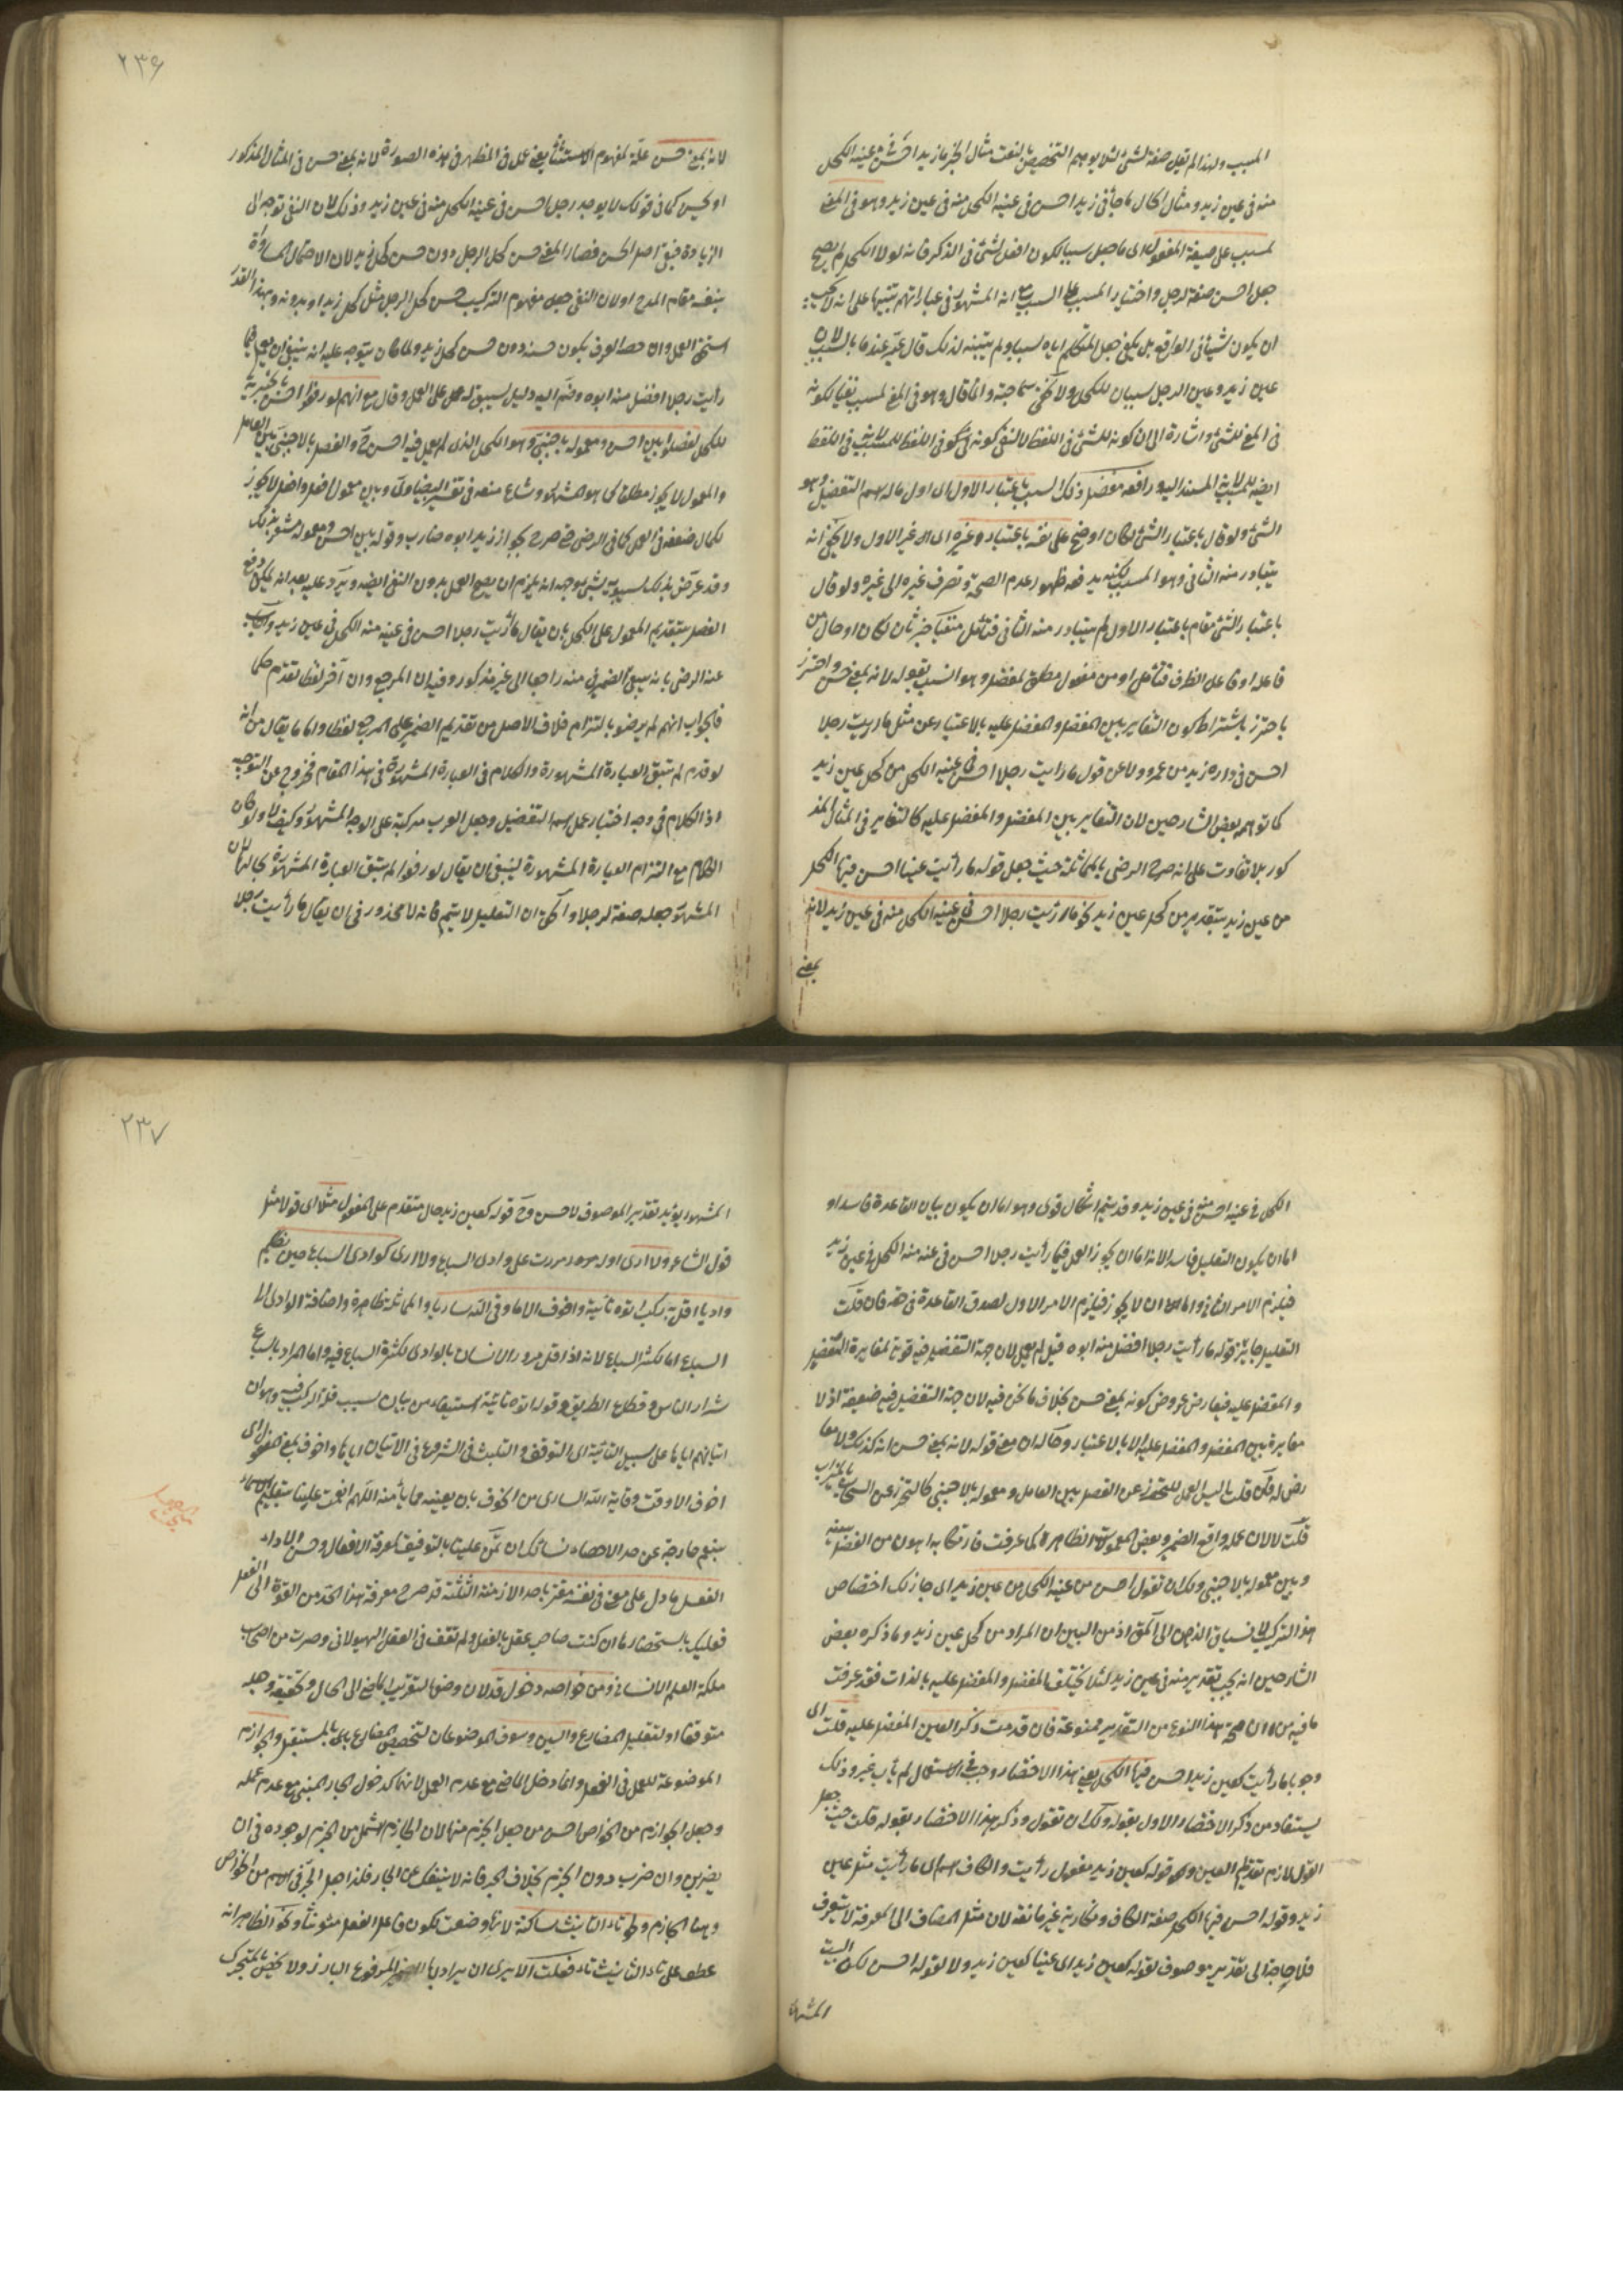 المسبب ولهذا لم يقل صفة لشئ لئلا يوهم التخصيص بالنعت مثال الخبر ما زيد احسن فى عينه الكحل
منه فى عين زيد ومثال الحال ما جاءنى زيد احسن فى عينه الكحل منه فى عين زيد وهو فى المعنى
لمسبب على صيغة المفعول اى ما جعل سببا لكون افعل لشئ فى الذكر فانه لولا الكحل لم يصح
جعل احسن صفة لرجل واختيار المسبب على السبب مع انه المشهور فى عباراتهم تنبيها على انه لا يجب
ان يكون لشيأ فى الواقع بل يكفى جعل المتكلم اياه سببا ولم يتنبه لذلك قال عمه عندنا بالسبب لان
عين زيد وعين الرجل سببان للكحل ولا يخفى سماجته وانما قال وهو فى المعنى لمسبب نفيا لكونه
فى المعنى للشئ واشارة الى ان كونه للشئ فى اللفظ
الشئ ولو قال باعتبار الشئ لكان اوضح على نفسه باعتبار غيره اى غير الاول ولا يخفى انه
يتبادر منه الثانى وهو المسبب لكنه يدفعه ظهور عدم الصحة وتصرف غيره الى غيره ولو قال
باعتبار الشئ مقام باعتبار الاول لم يتبادر منه الثانى فتأمل منفيا خبر ثان لكان او حال من
فاعله او فاعل الظرف فتأمل او من مفعول مطلق لمفضل وهو انسب بقوله لانه بمعنى حسن واحترز
باحترز باشتراط كون التغاير بين المفضل والمفضل عليه بالاعتبار عن مثل ما رأيت رجلا
احسن فى داره زيد من عمرو ولا عن قول ما رأيت رجلا احسن فى عينه الكحل من كحل عين زيد
كما توهمه بعض الشارحين لان التغاير بين المفضل والمفضل عليه كالتغاير فى المثال المذ
كور بلا تفاوت على انه صرح الرضى بالمماثلة حيث جعل قوله ما رأيت عينا احسن فيها الكحل
من عين زيد بتقدير من كحل عين زيد نحو ما رأيت رجلا احسن فى عينه الكحل منه فى عين زيد لانه
بمعنى
٢٣٦
لانه بمعنى حسن علة لمفهوم الاستثناء يعنى عمل فى المظهر فى هذه الصورة لانه بمعنى حسن فى المثال المذكور
او يحسن كما فى قولك لا يوجد رجل احسن فى عينه الكحل منه فى عين زيد وذلك لان النفى توجه الى
الزيادة فبقى اصل الحسن فصار المعنى حسن كحل الرجل دون حسن كحل زيد لان الاحتمال المساواة
ينفيه مقام المدح او لان النفى جعل مفهوم التركيب حسن كحل الرجل مثل كحل زيد او بدونه وبهذا القدر
استحق العمل وان خصه العرف بكون حسنه دون حسن كحل زيد ولما كان يتوجه عليه انه ينبغى ان يعمل فيما
رأيت رجلا افضل منه ابوه وضم اليه دليل سيبويه على العمل وقال مع انهم لو رفعوا احسن بالخبرية
للكحل لفصلوا بين احسن ومعموله باجنبى وهو الكحل الذى لم يعمل فيه احسن ح والفصل بالاجنبى بين العامل
والمعمول لا يجوز مطلقا كما هو المشهور وشاع منعه فى تفسير البيضاوى وبين معمول افعل وافعل لا يجوز
لكمال ضعفه فى العمل كما فى الرضى فى صرح بجواز زيد ابوه ضارب وقوله بين احسن ومعموله مشعر بذلك
الفصل بتقديم المعمول على الكحل بان يقال ما رأيت رجلا احسن فى عينه منه الكحل فى عين زيد واجاب
عنه الرضى بانه يبقى الضمير فى منه راجعا الى غير مذكور وفيه ان المرجع وان آخر لفظا تقدم حكما
فالجواب انهم لم يرضوا بالتزام خلاف الاصل من تقديم الضمير على المرجع لفظا واما ما يقال من انه
لو قدم لم تبق العبارة المشهورة والكلام فى العبارة المشهورة فى هذا المقام فخروج عن التوجيه
اذ الكلام فى وجه اختيار عمل اسم التفضيل وجعل العرب مركبه على الوجه المشهور وكيف لا ولو كان
الكلام مع التزام العبارة المشهورة لينبغى ان يقال لو رفعوا لم تبق العبارة المشهورة بحالها لان
المشهور جعله صفة لرجلا والحق ان التعليل لا يتم فانه لا محذور فى ان يقال ما رأيت رجلا
الكحل فى عينه احسن منه فى عين زيد وقد يتم اشكال قوى وهو اما ان يكون بيان القاعدة فاسدا و
اما ان يكون التعليل فاسدا لانه اما ان يجوز العمل فيما رأيت رجلا احسن فى عينه منه الكحل فى عين زيد
فيلزم الامر الثانى واما ان لا يجوز فيلزم الامر الاول لصدق القاعدة فى هذه فان قلت
التعليل جار فى قوله ما رأيت رجلا افضل منه ابوه قيل لم يعمل لان جهة التفضيل فيه قوية لمغايرة المفضل
والمفضل عليه فيعارض عروض كونه بمعنى حسن بخلاف ما نحن فيه لان جهة التفضيل فيه ضعيفة اذ لا
مغايرة بين المفضل والمفضل عليه الا بالاعتبار وحاله ان معنى قوله لانه بمعنى حسن انه كذلك ولا معا
رض له فان قلت ليس العمل للتحرز عن الفصل بين العامل ومعموله بالاجنبى كالتحرز عن السحاب بالميزاب
قلت لا لان عمله واقع الضمير وبعض المعمولات الظاهرة كما عرفت فارتكابه اهون من الفصل بينه
وبين معموله بالاجنبى ولك ان تقول احسن من عينه الكحل من عين زيد اى جاز لك اختصاص
هذا التركيب لانسياق الذهن الى الحق اذ من البين ان المراد من كحل عين زيد وما ذكره بعض
الشارحين انه يجب تقدير منه فى عين زيد لئلا يختلف المفضل والمفضل عليه بالذات فقد عرفت
ما فيه من ان صحة هذا النوع من التقدير ممنوعة فان قدمت ذكر العين المفضل عليه قلت اى
وجوبا ما رأيت كعين زيد احسن فيها الكحل يعنى هذا الاختصار وجب فى الاستعمال لم يأت غيره وذلك
يستفاد من ذكر الاختصار الاول بقوله ولك ان تقول وذكر هذا الاختصار بقوله قلت حيث جعل
القول لازم تقديم العين وقوله كعين زيد مفعول رأيت والكاف اسم اى ما رأيت مثل عين
زيد وقوله احسن فيها الكحل صفة الكاف ونكاريته غير مانعة لان مثل المضاف الى المعرفة لا يتعرف
فلا حاجة الى تقدير موصوف لقوله كعين زيد اى عينا كعين زيد ولا لقوله احسن لكن البيت
المشهو
٢٣٧
المشهور يؤيد تقدير الموصوف لاحسن وح قوله كعين زيد حال متقدم على المفعول مثل اى قولا مثل
قول الشاعر ولا ارى اوله مررت على وادى السباع ولا ارى كوادى السباع حين يظلم
واديا اقل به ركب اتوه تأية واخوف الا ما وقى الله ساريا والمماثلة ظاهرة واضافة الوادى الى
السباع اما لكثرة السباع لانه اذا قل مرور الانسان بالوادى لكثرة السباع فيه واما المراد بالسباع
شرار الناس وقطاع الطريق وقوله اتوه تأية استيفاد من بيان سبب قلة الركب فيه وهو ان
اتيانهم اياها على سبيل التأية اى التوقف والتلبث فى الشروع فى الاتيان اياها واخوف بمعنى مفعول اى
اخوف الا وقت وقاية الله السارى من الخوف بان يعينه مما يأمنه اللهم انعمت علينا بتعليم الاسماء
بنعم خارجة عن حد الاحصاء نسألك ان تمن علينا بالتوفيق لمعرفة الافعال وحسن الاداء
الفعل ما دل على معنى فى نفسه مقترن باحد الازمنة الثلثة قد صرح معرفة هذا الحد من القوة الى الفعل
فعليك باستحضار ما ان كنت صاحب عقل بالفعل ولم تقف فى العقل الهيولانى وصرت من اصحاب
ملكة العلم الانسانى ومن خواصه دخول قد لان وضعها لتقريب الماضى الى الحال وتحقيقه وجعله
متوقعا او لتقليل المضارع والسين وسوف الموضوعان لتخصيص المضارع بالمستقبل والجوازم
الموضوعة للعمل فى الفعل وانما دخل الماضى مع عدم العمل لانها كدخول الجار المبنى مع عدم عمله
وجعل الجوازم من الخواص احسن من جعل الجزم منها لان الجازم اشمل من الجزم لوجوده فى ان
يضربن وان ضرب دون الجزم بخلاف الجر فانه لا ينفك عن الجار فلذا جعل الجر فى الاسم من الخواص
وههنا الجازم ولحوق تاء التانيث ساكنة لانها وضعت لكون فاعل الفعل مؤنثا ونحو الظاهر انه
عطف على تاء التانيث تاء فعلت الا يرى ان يراد بها الضمير المرفوع البارز ولا يخص بالمتحرك